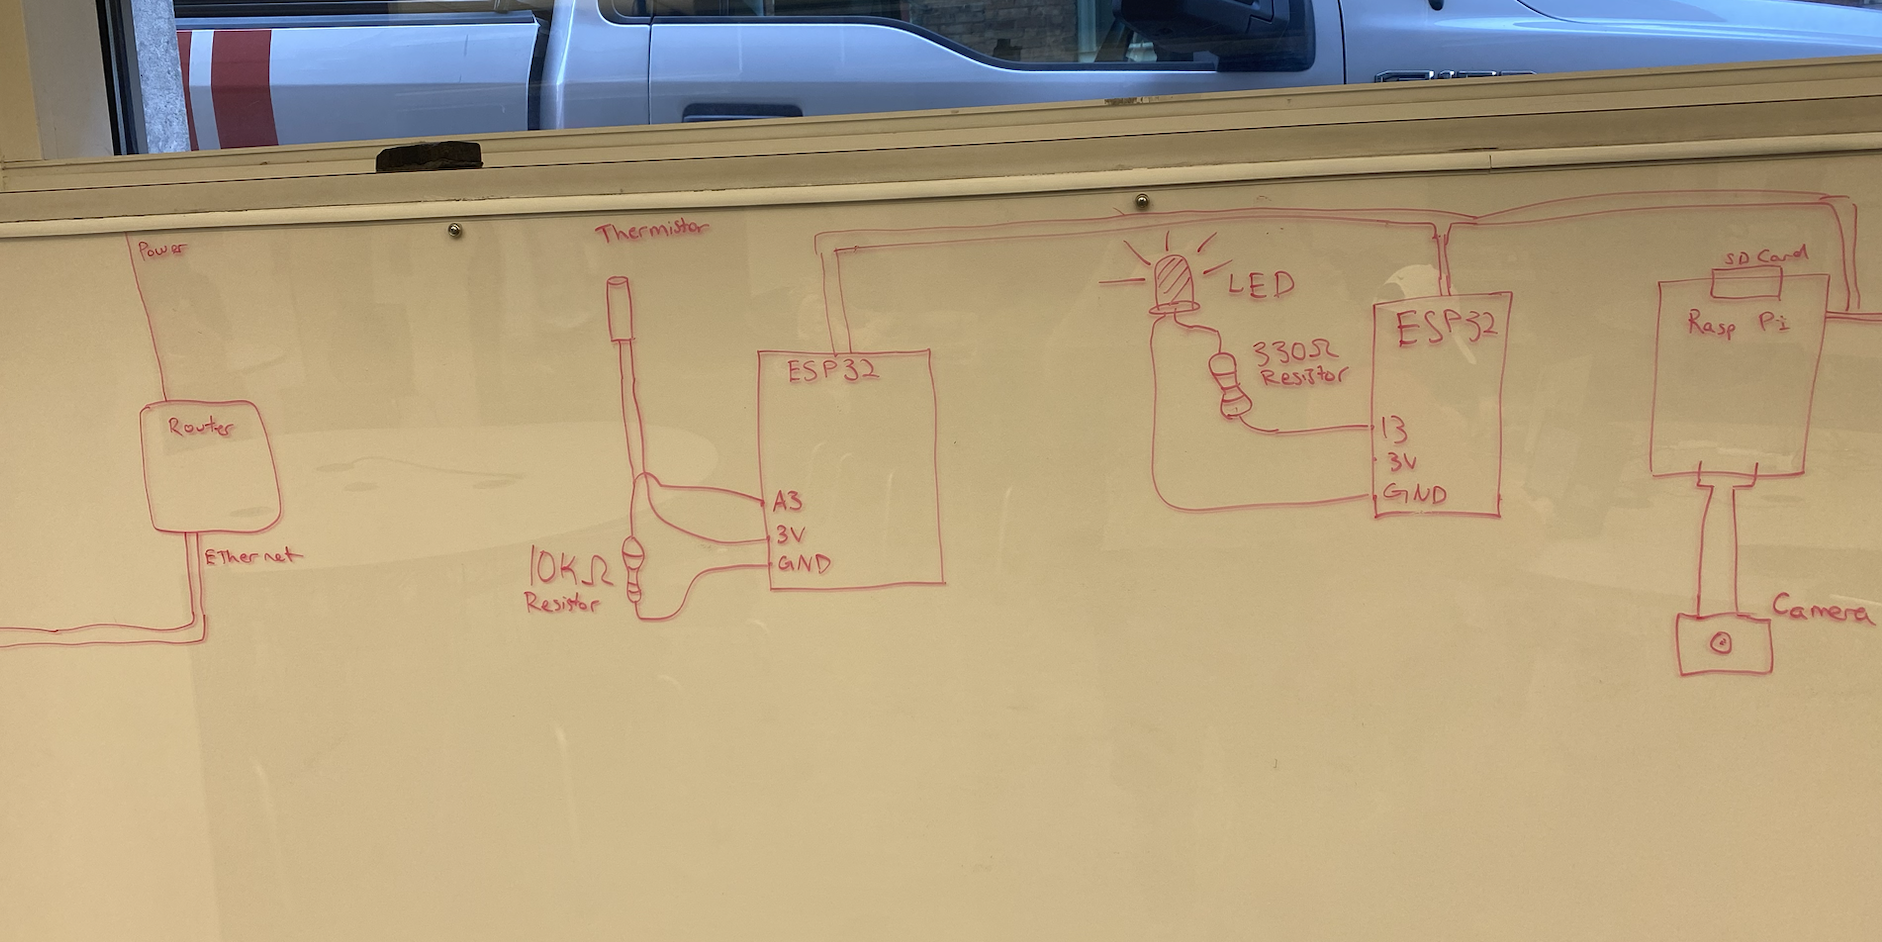 Power
Router
Ethernet
Thermistor
10KΩ
Resistor
ESP32
A3
3V
GND
LED
330Ω
Resistor
ESP32
13
3V
GND
SD Card
Rasp Pi
Camera